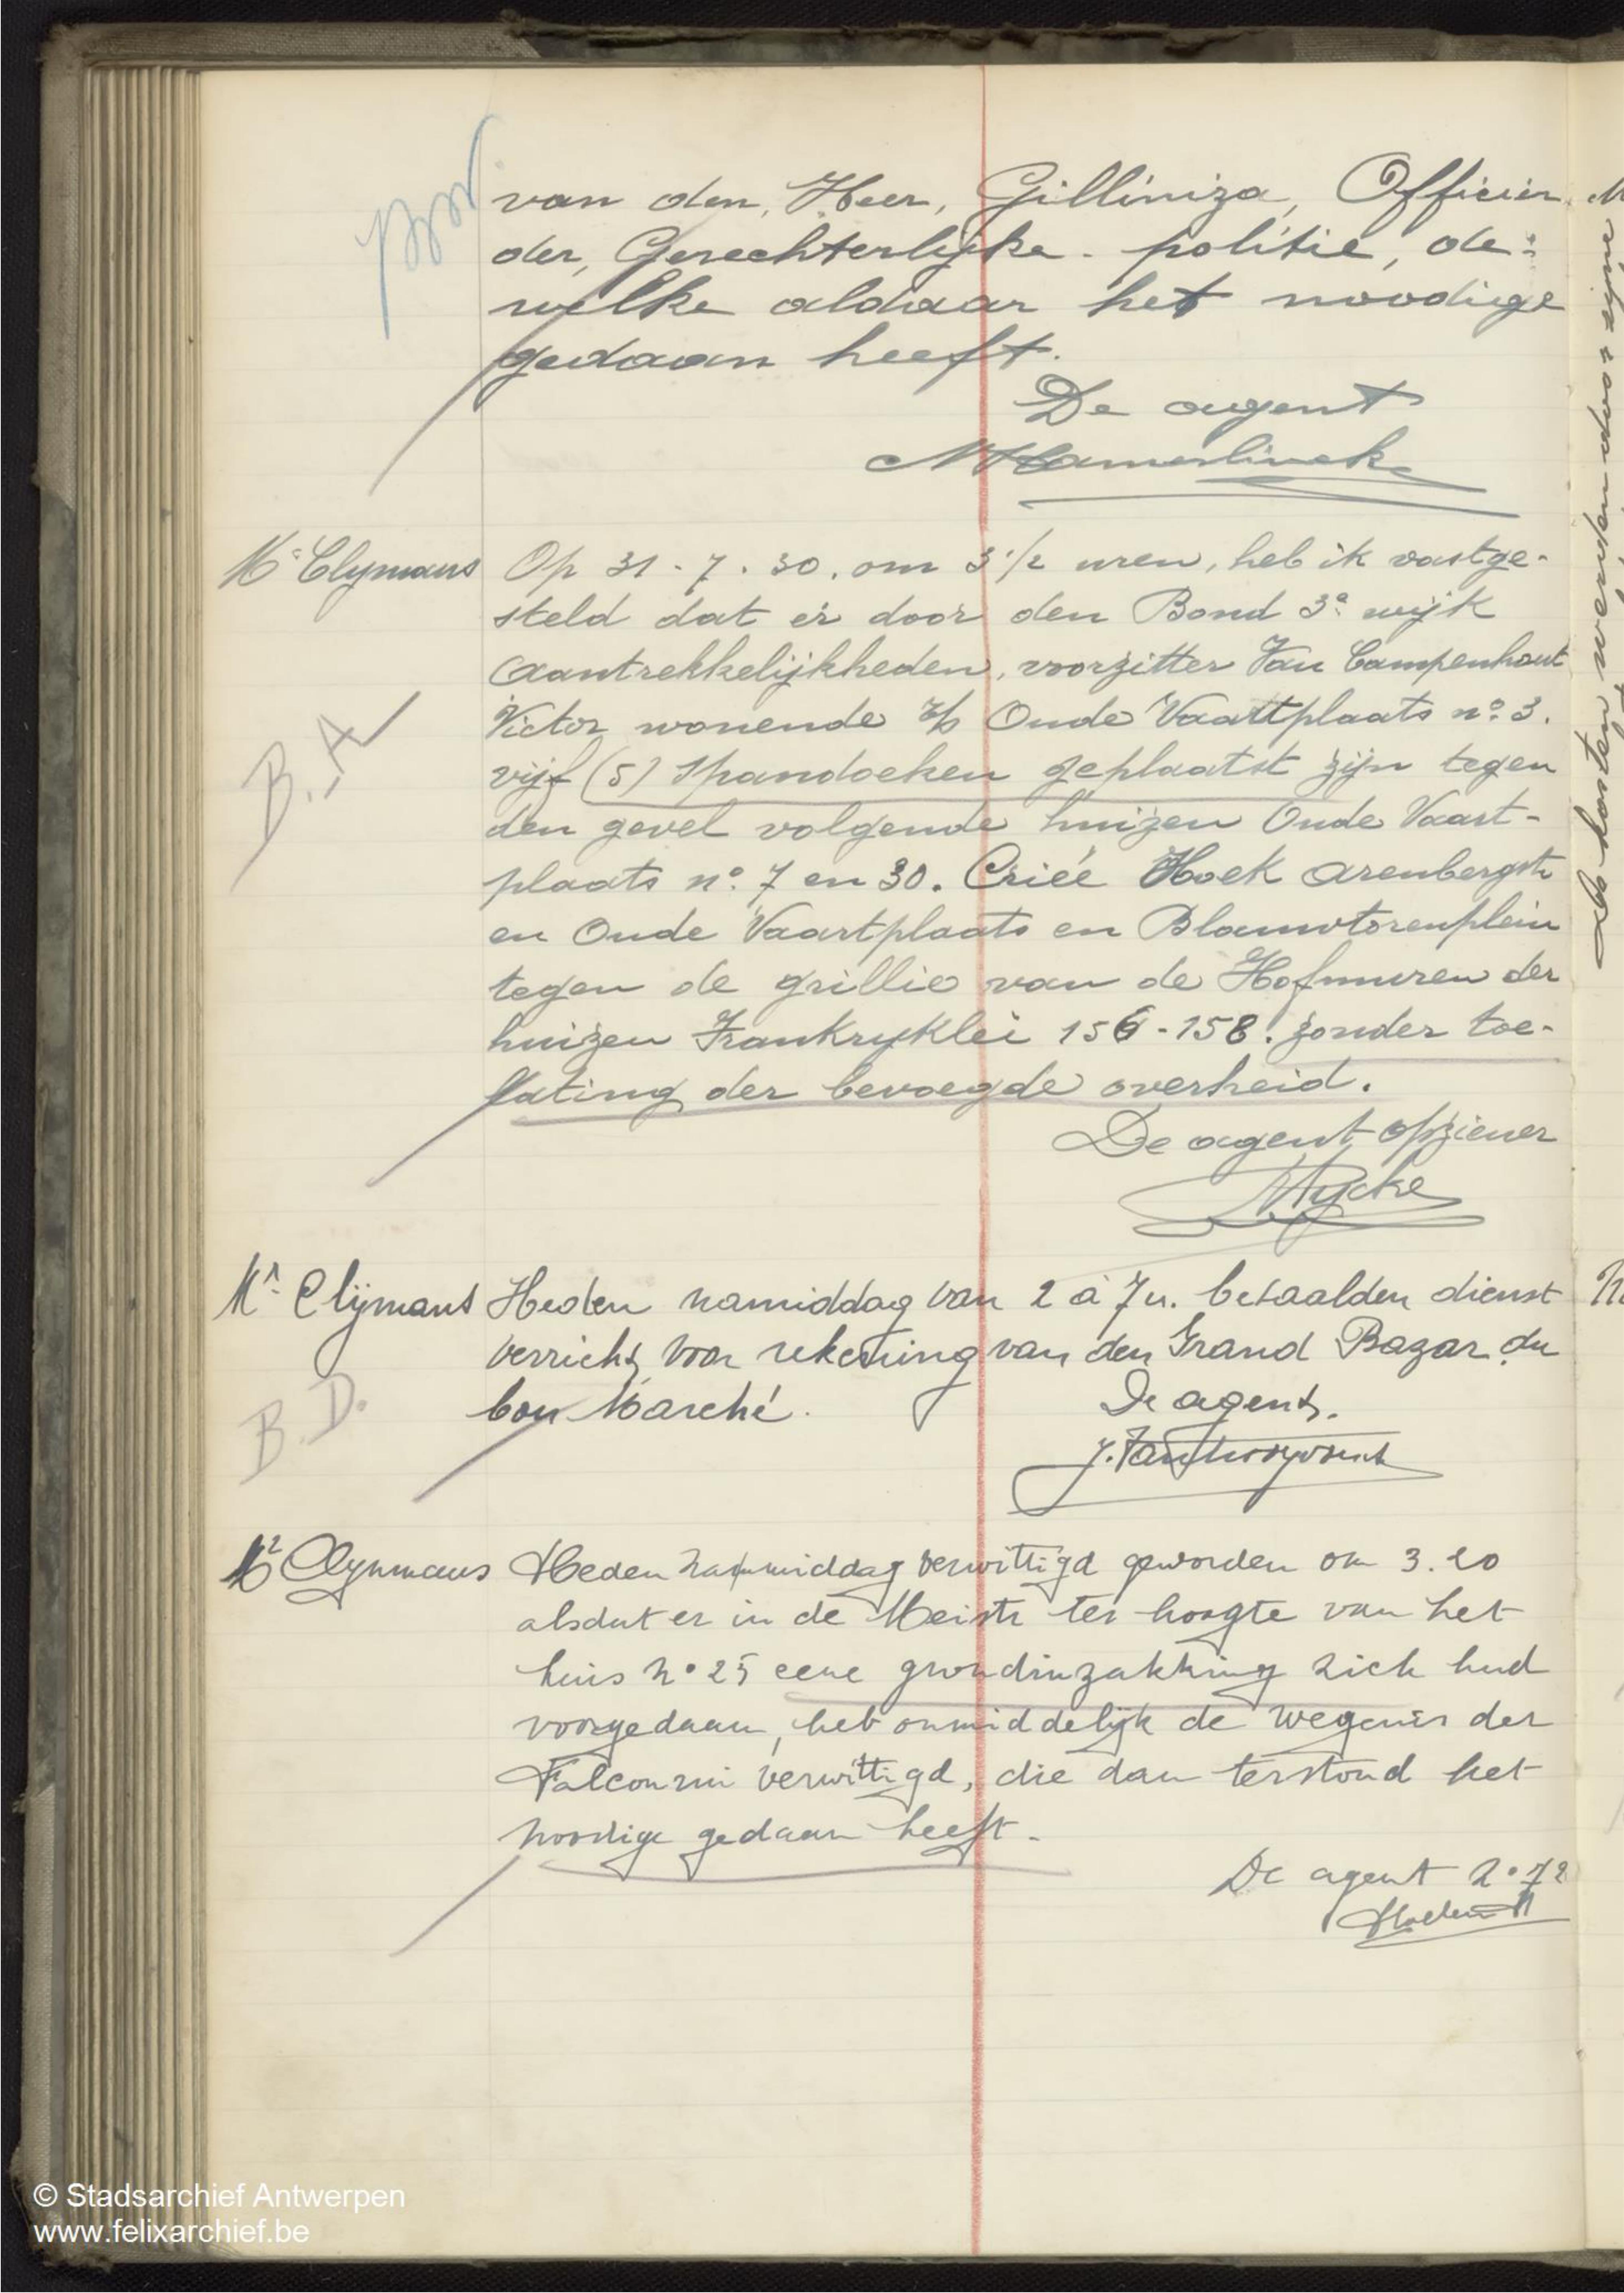 van den, Heer, Gilliniza, Officier
der, Gerechterlijke. politie, de=
welke aldaar het noodige
gedaan heeft.
De agent
Mr Clymans
Op 31.7.30. om 3 1/2 uren, heb ik vastge-
steld dat er door den Bond 3e wijk
Aantrekkelijkheden, voorzitter Van Campenhout
Victor wonende Oude Vaartplaats no 3.
vijf (5) spandoeken geplaatst zijn tegen
den gevel volgende huizen Oude Vaart-
plaats no. 7 en 30. Criée Hoek Arenbergstr
en Oude Vaartplaats en Blauwtorenplein
tegen de grillie van de Hofmuren der
huizen Frankryklei 156-158. zonder toe-
lating der bevoegde overheid.
B.A
De agent opziener
Mr Clijmans
Heden namiddag van 2 à 7 u. betaalden dienst
verricht voor rekening van den Grand Bazar du
bon Marché.
B.D.
De agent.
Mr Clymans
Heden namiddag verwittigd geworden om 3.20
alsdat er in de Meirstr ter hoogte van het
huis No 25 eene grondinzakking zich had
voorgedaan, heb onmiddelijk de wegenis der
Falconrui verwittigd, die dan terstond het
noodige gedaan heeft.
De agent No 72
© Stadsarchief Antwerpen
www.felixarchief.be